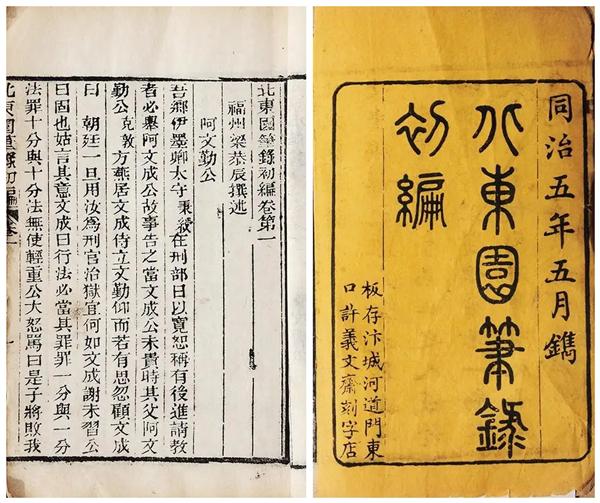 同治五年五月鐫
北東園筆錄
初編
板存汴城河道門東
口許義文齋刻字店
北東園筆錄初編卷第一
福州梁恭辰撰述
阿文勤公
吾鄉伊墨卿太守秉綬在刑部日以寬恕稱有後進請教
者必舉阿文成公故事告之當文成公未貴時其父阿文
勤公克敦方燕居文成侍立文勤仰而若有思忽顧文成
曰 朝廷一旦用汝為刑官治獄宜何如文成謝未習公
曰固也姑言其意文成曰行法必當其罪罪一分與一分
法罪十分與十分法無使輕重公大怒罵曰是子將敗我
北東園筆錄初編 卷一 一